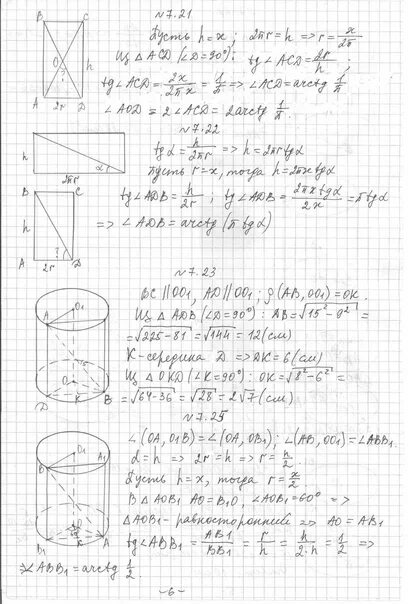 №7.21
B C
Пусть h=x; 2πr=h => r=x/2π
O
?
h
A 2r D
Из △ACD (∠D=90°): tg∠ACD=2r/h;
tg∠ACD=2x/2πx=1/π => ∠ACD=arctg 1/π
∠AOD=2∠ACD=2arctg 1/π.
№7.22
h
α
2πr
tgα=h/2πr => h=2πr tgα
Пусть r=x, тогда h=2πx tgα
B C
h
?
A 2r D
tg∠ADB=h/2r; tg∠ADB=2πx tgα/2x=π tgα
=> ∠ADB=arctg(π tgα)
№7.23
O1
A
15
O
D K B
BC||OO1, AD||OO1; ρ(AB,OO1)=OK.
Из △ADB (∠D=90°): AB=√15²-9²=
=√225-81=√144=12(см)
K-середина D. => BK=6(см)
Из △OKD (∠K=90°): OK=√8²-6²=
=√64-36=√28=2√7(см)
№7.25
O1
B A1
O
B1 K A
∠(OA,O1B)=∠(OA,OB1); ∠(AB,OO1)=∠ABB1.
d=h => 2r=h => r=h/2.
Пусть h=x, тогда r=x/2.
В △AOB1 AO=B1O, ∠AOB1=60° =>
△AOB1-равносторонний => AO=AB1
tg∠ABB1=AB1/BB1=r/h=h/2·h=1/2 =>
=>∠ABB1=arctg 1/2.
-6-